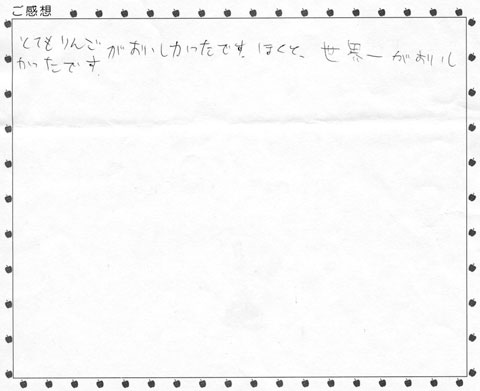 ご感想
とてもりんごがおいしかったです。ほくと、世界一がおいし
かったです。